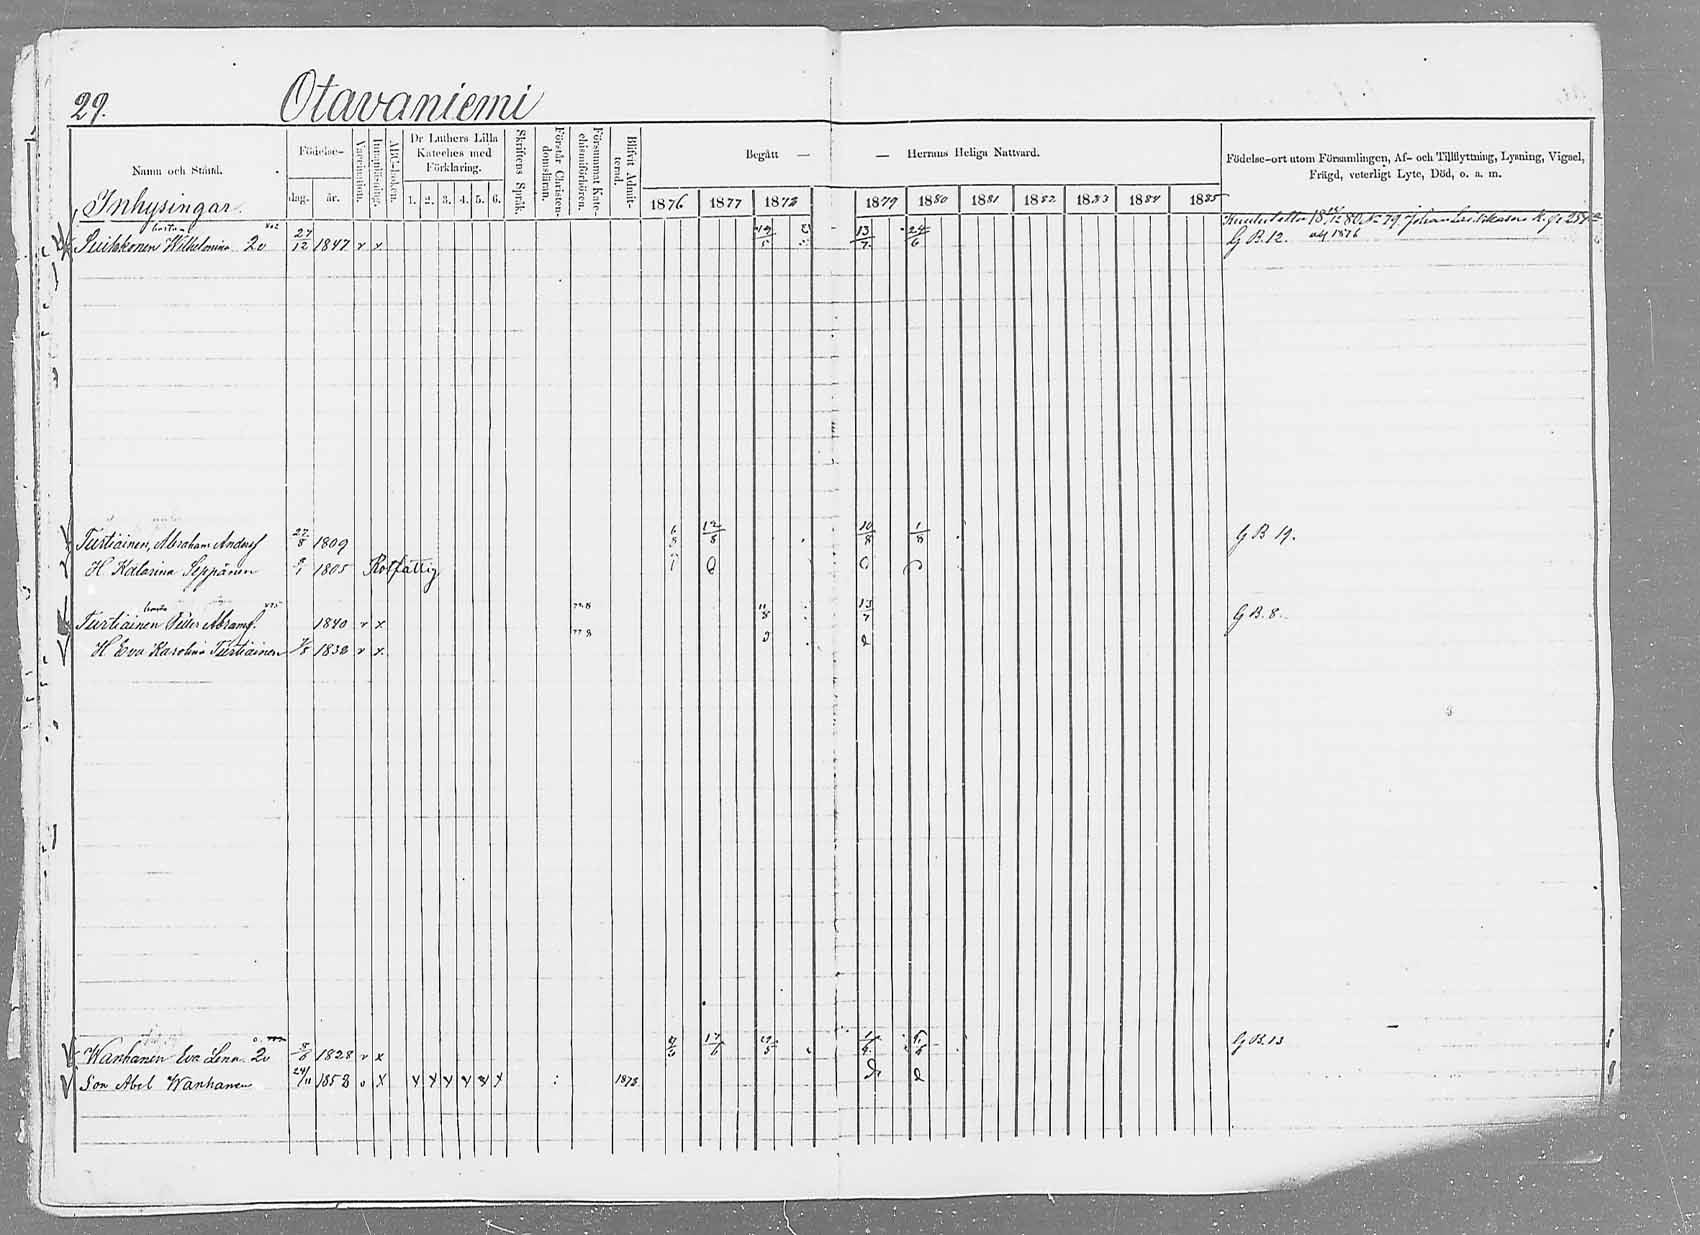 29. Otavaniemi
Namn och Stånd.
Födelse-
dag. år.
Vaccination.
Innanläsning.
ABC-boken.
Dr Luthers Lilla Kateches med Förklaring.
1. 2. 3. 4. 5. 6.
Skriftens Språk.
Förstår Christendomsläran.
Försummat Katechismiförhören.
Blifvit Admitterad.
Begått — — Herrans Heliga Nattvard.
1876 1877 1878 1879 1880 1881 1882 1883 1884 1885
Födelse-ort utom Församlingen, Af- och Tillflyttning, Lysning, Vigsel,
Frägd, veterligt Lyte, Död, o. a. m.
Inhysingar.
Suikkonen Wilhelmina 27/12 1847 v x 13/7 24/6 G B. 12.
Turtiainen, Abraham Andersf 27/8 1809 6/8 12/8 10/8 1/8 G B 19.
H Katarina Seppänen 1805 Rotfattig
Turtiainen Petter Abramsf. 1840 v x 11/8 13/7 G B. 8.
H Eva Karolina Turtiainen 1832 v x.
Wanhanen Eva Lena 8/6 1828 v x 17/6 G B. 13
Son Abel Wanhanen 24/11 1858 v x x x x x x x 1878